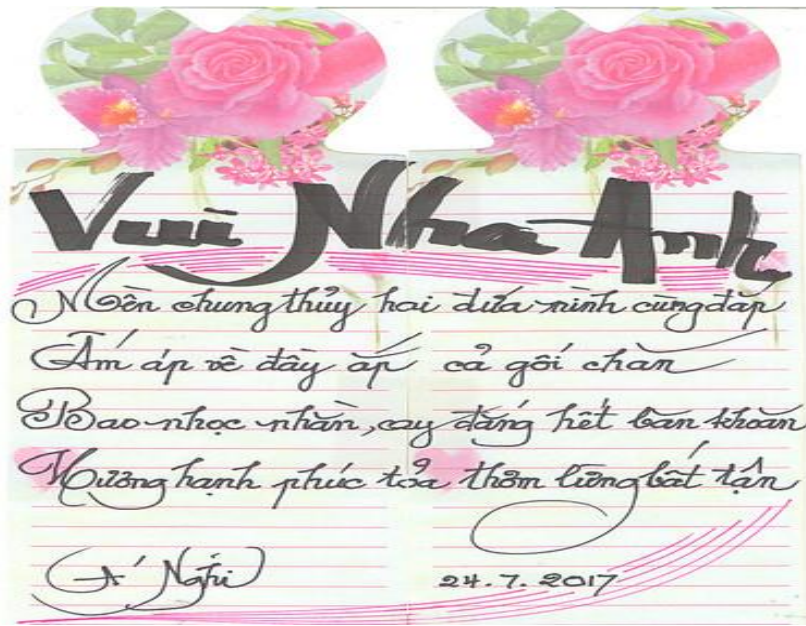 Vui Nha Anh
Mền chung thủy hai đứa mình cùng đắp
Ấm áp về đầy ắp cả gối chăn
Bao nhọc nhằn, cay đắng hết băn khoăn
Hương hạnh phúc tỏa thơm lừng bất tận
Á Nghi
24.7.2017